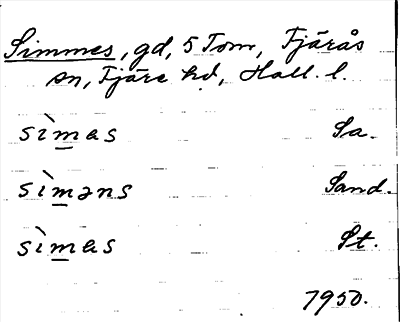 Simmes, gd, 5 Tom, Fjärås
sn, Fjäre hd, Hall. l.
sìm̲as Sa.
sìm̲əns Sand.
sìm̲as St.
1950.